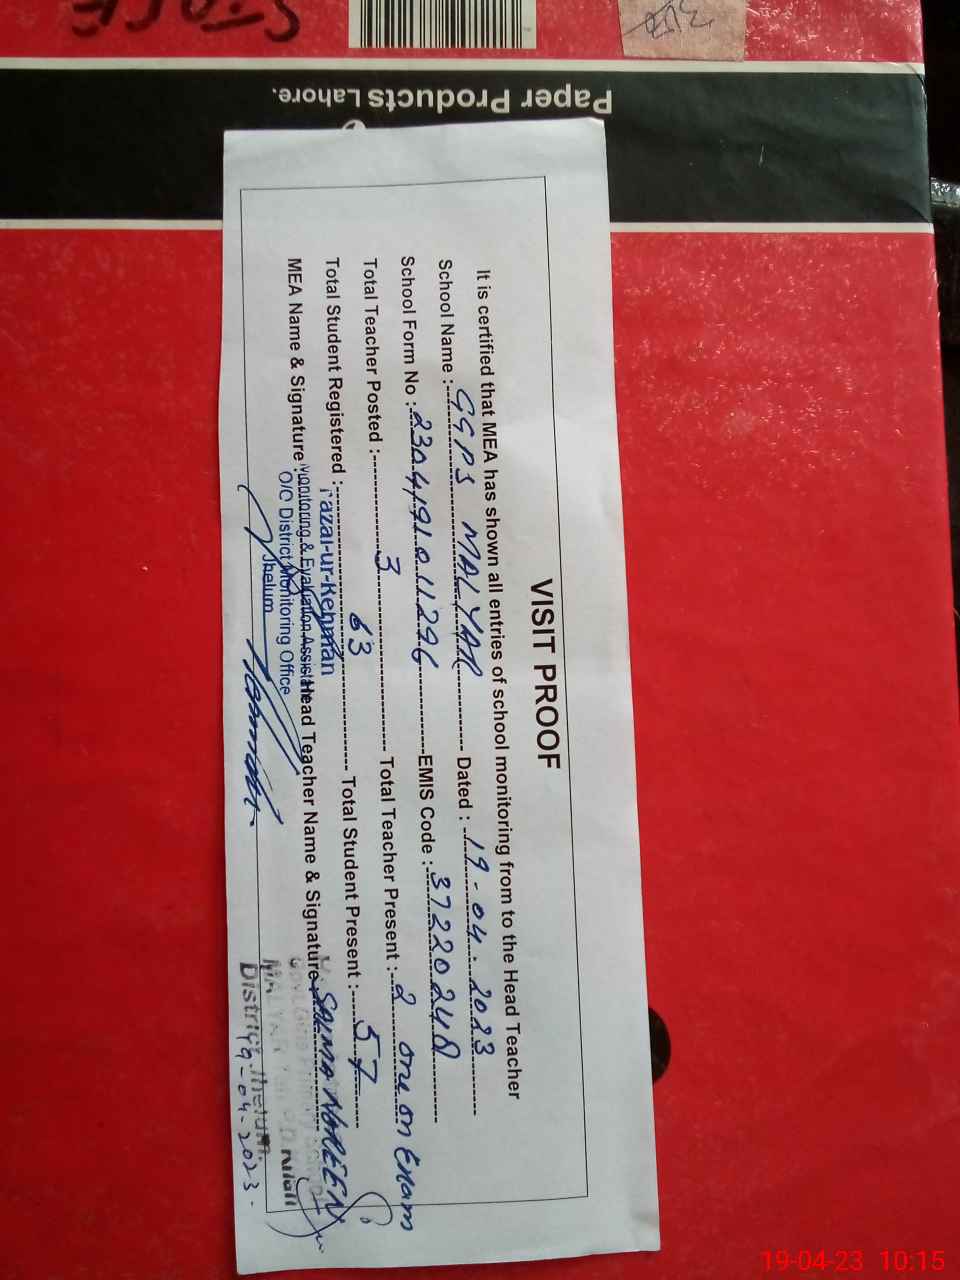 STORE
Paper Products Lahore.
VISIT PROOF
It is certified that MEA has shown all entries of school monitoring from to the Head Teacher
School Name : GGPS MALYAR Dated : 19-04-2023
School Form No : 2304191011296 EMIS Code : 37220248
Total Teacher Posted : 3 Total Teacher Present : 2 one on Exam
Total Student Registered : 63 Total Student Present : 57
MEA Name & Signature : Head Teacher Name & Signature SAIMA NOREEN
Fazal-ur-Rehman
Monitoring & Evaluation Assistant
O/C District Monitoring Office
Jhelum
MALYAR
District Jhelum.
19-04-2023
19-04-23 10:15